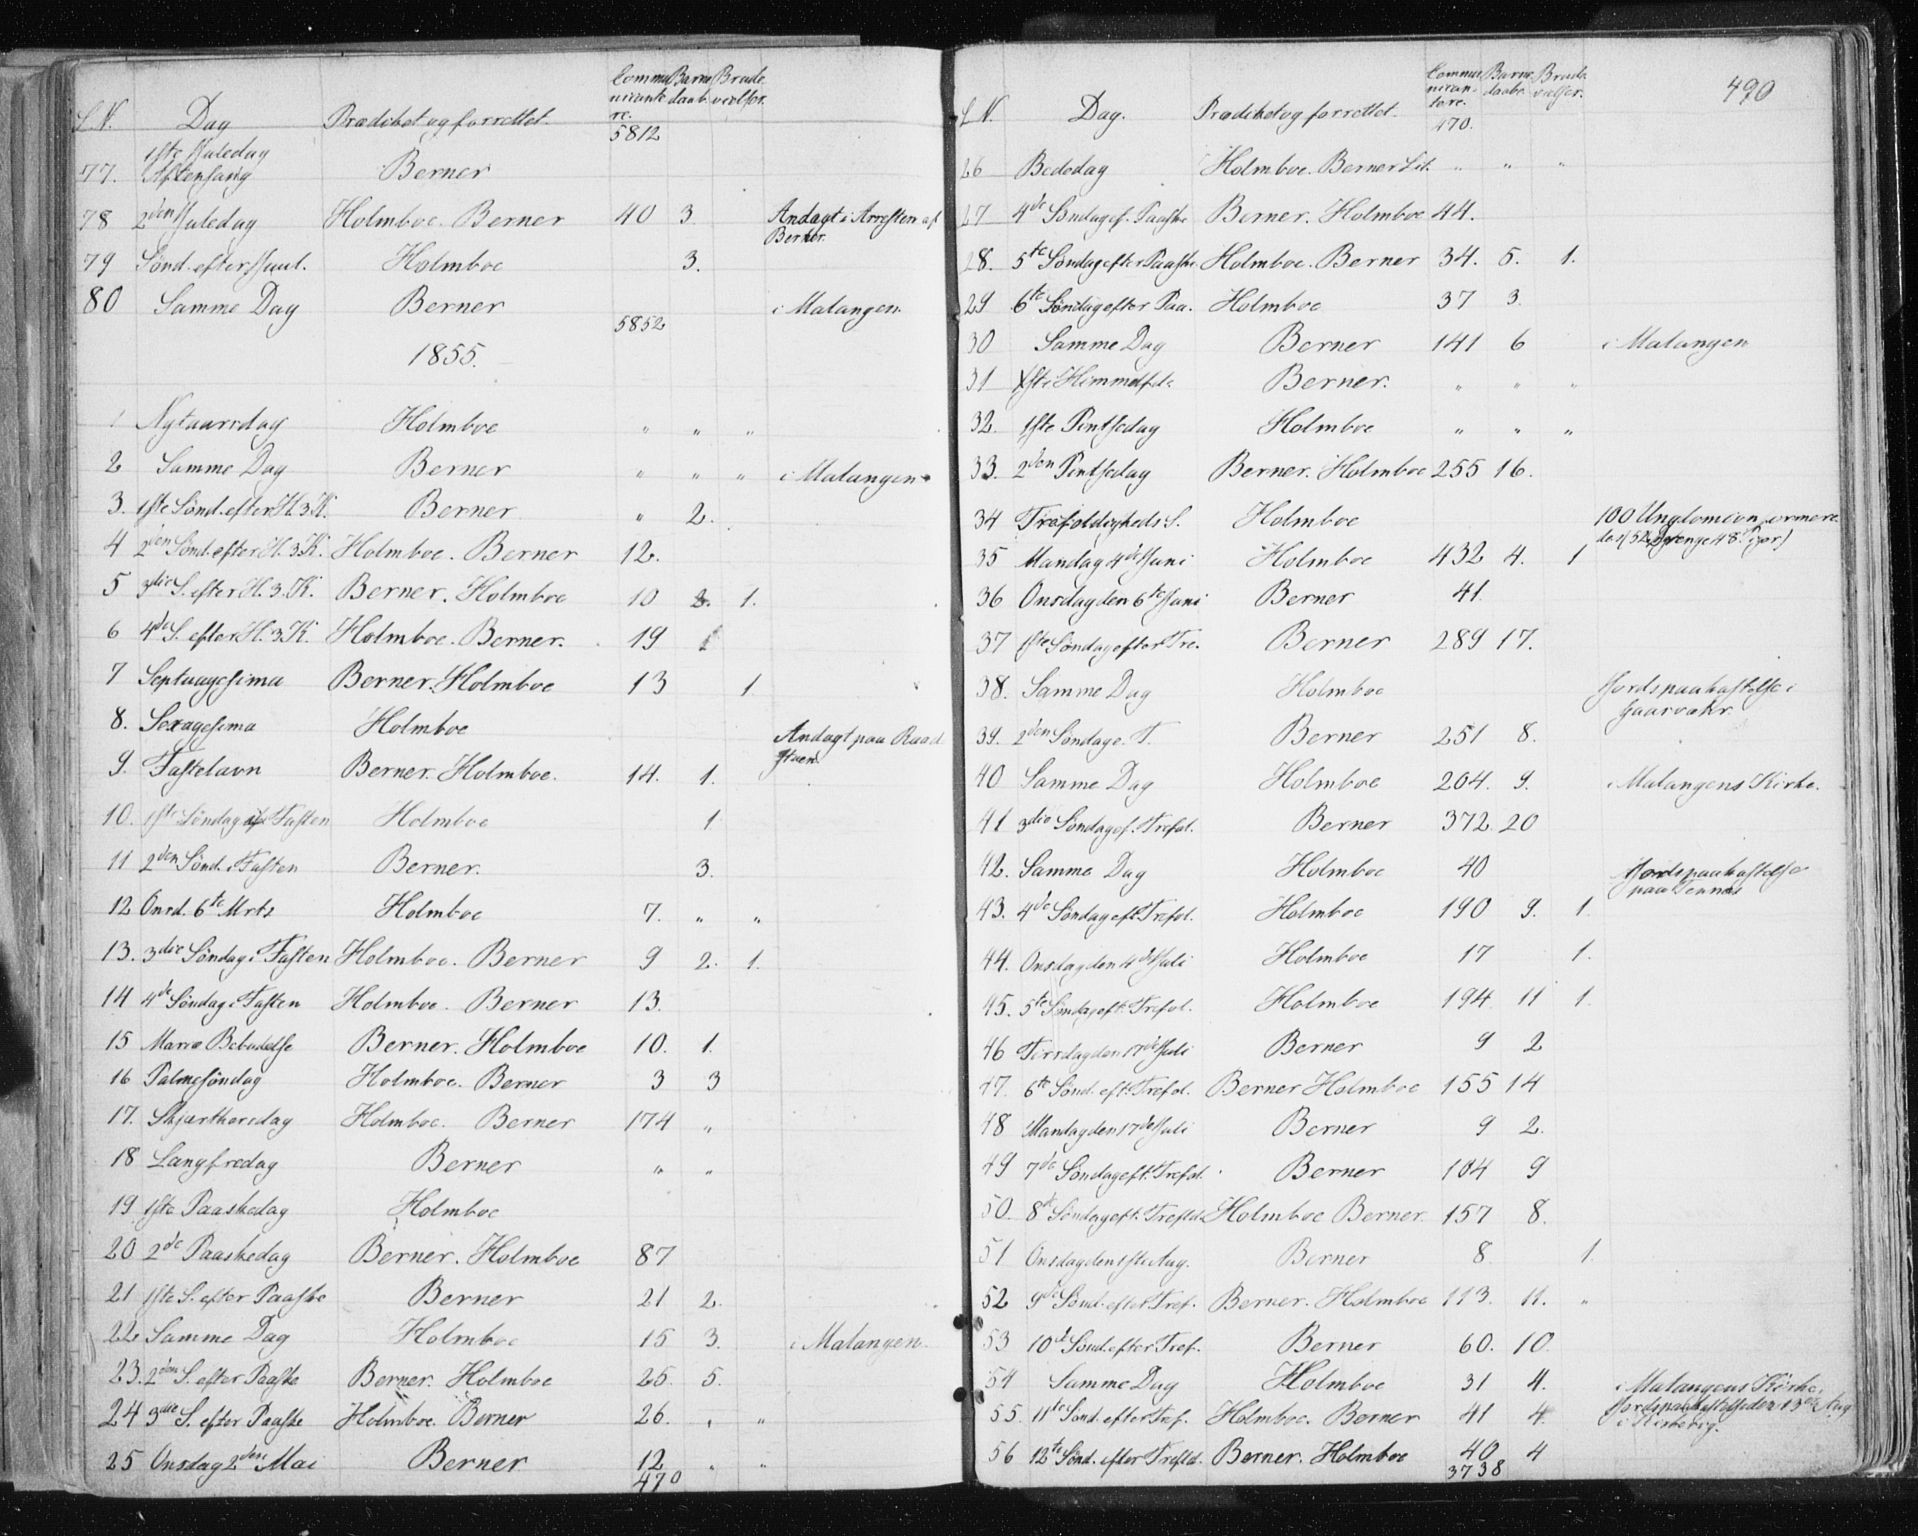 L.N. Dag Prædiket og forrettet. Communicantere. Barnedaab. Brudevielser.
5812
77. 1ste Juledag Aftensang Berner
78 2den Juledag Holmboe. Berner 40 3. Andagt i Arresten af Berner.
79 Sønd. efter Juul. Holmboe 3.
80 Samme Dag Berner i Malangen
5852
1855.
1 Nytaarsdag Holmboe " " "
2 Samme Dag Berner " " " i Malangen
3. 1ste Sønd. efter H.3.K. Berner " 2.
4 2den Sønd. efter H.3.K. Holmboe. Berner 12.
5 3die S. efter H.3.K. Berner. Holmboe 10 2. 1.
6 4de S. efter H.3.K. Holmboe. Berner. 19 1
7 Septuagesima Berner. Holmboe 13 1
8. Sexagesima Holmboe
9. Fastelavn Berner. Holmboe. 14. 1. Andagt paa Raadstuen.
10. 1ste Søndag i Fasten Holmboe 1
11 2den Sønd. i Fasten Berner. 3.
12 Onsd. 6te Mrts Holmboe 7. " "
13. 3die Søndag i Fasten Holmboe. Berner 9 2. 1.
14 4de Søndag i Fasten Holmboe. Berner 13.
15 Mariæ Bebudelse Berner. Holmboe 10. 1.
16 Palmesøndag Holmboe. Berner 3 3
17. Skjærthorsdag Holmboe. Berner 174 "
18 Langfredag Berner " "
19 1ste Paaskedag Holmboe
20 2de Paaskedag Berner. Holmboe 87
21 1ste S. efter Paaske Berner 21 2.
22 Samme Dag Holmboe 15 3. i Malangen.
23. 2den S. efter Paaske Berner. Holmboe 25. 5.
24 3die S. efter Paaske Holmboe. Berner 26. " "
25 Onsdag 2den Mai Berner 12 " "
470
490
L.N. Dag. Prædiket og forrettet. Communicantere. Barnedaabe. Brudevielser.
470.
26 Bededag Holmboe. Berner " " "
27 4de Søndag ef. Paaske Berner. Holmboe 44.
28. 5te Søndag efter Paaske Holmboe. Berner 34. 5. 1.
29 6te Søndag efter Paa. Holmboe 37 3.
30 Samme Dag Berner 141 6 i Malangen
31 Berner. " " "
32. 1ste Pintsedag Holmboe " " "
33. 2den Pintsedag Berner. Holmboe 255 16.
34 Trefoldigheds S. Holmboe 100 Ungdom
35 Mandag 4de Juni Holmboe 432 4. 1
36 Onsdag den 6te Juni Berner 41.
37 1ste Søndag efter Tre. Berner 289 17.
38. Samme Dag Holmboe Jordspaakastelse i
39. 2den Søndag e. T. Berner 251 8.
40 Samme Dag Holmboe 204. 9. i Malangens Kirke.
41 3die Søndag ef. Trefol. Berner 372 20
42. Samme Dag Holmboe 40 Jordspaakastelse paa
43. 4de Søndag eft. Trefol. Holmboe 190 9. 1.
44. Onsdag den Juli Holmboe 17 1.
45. 5te Søndag eft. Trefol. Holmboe 194 11 1.
46 Tirsdag den 17de Juli Berner 9 2
47. 6te Sønd. eft. Trefol. Berner Holmboe 155 14
48 Mandag den 17de Juli Berner 9 2.
49 7de Søndag eft. Trefol. Berner 104 9
50. 8de Søndag eft. Trefold. Holmboe Berner. 157 8.
51 Onsdag den 1ste Aug. Berner 8 1.
52 9de Sønd. efter Tref. Berner. Holmboe 113. 11. "
53 10de Sønd. efter Tref. Berner 60. 10.
54 Samme Dag Holmboe 31 4. i Malangens Kirke.
55. 11te Sønd. efter Tref. Holmboe. Berner 41 4 Jordspaakastelse den 13de Aug i
56 12te Sønd. efter Trefold. Berner. Holmboe 40 4
3738